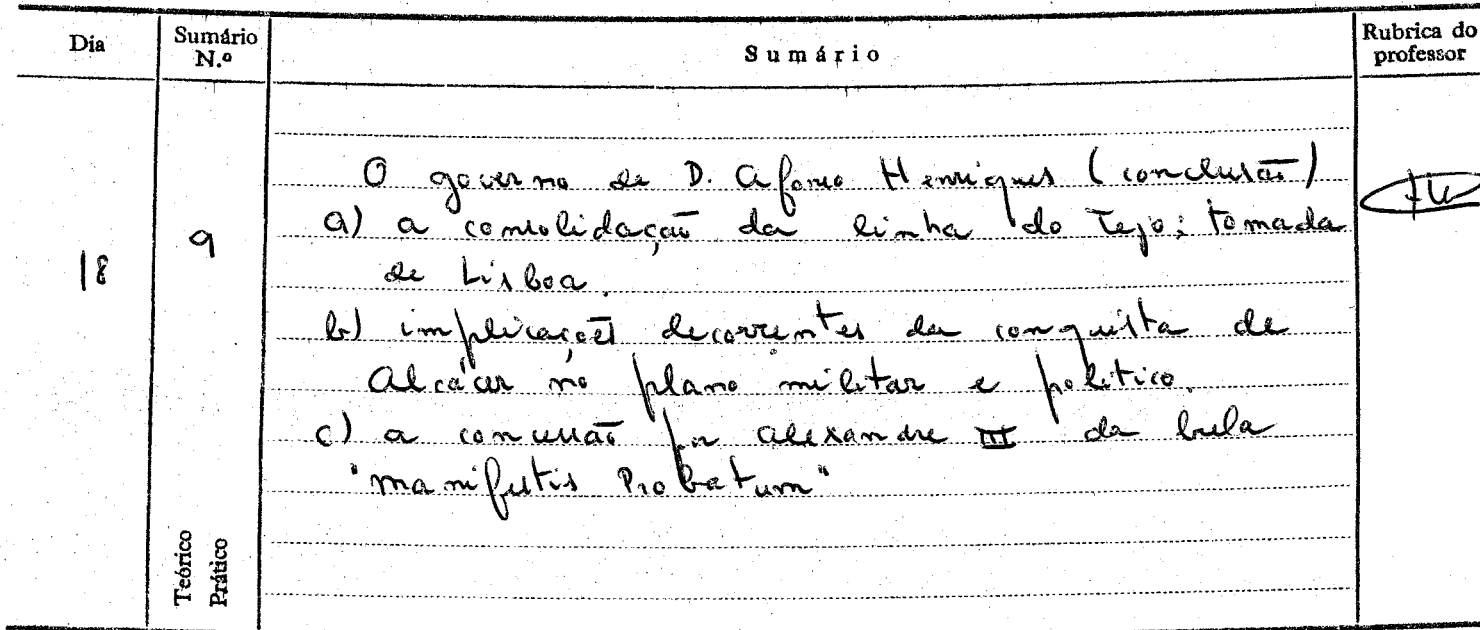 Dia Sumário N.º Sumário Rubrica do professor
18 9
O governo de D. Afonso Henriques (conclusão)
a) a consolidação da linha do Tejo; tomada
de Lisboa.
b) implicações decorrentes da conquista de
Alcácer no plano militar e político.
c) a concessão por Alexandre III da bula
"Manifestis Probatum"
Teórico
Prático